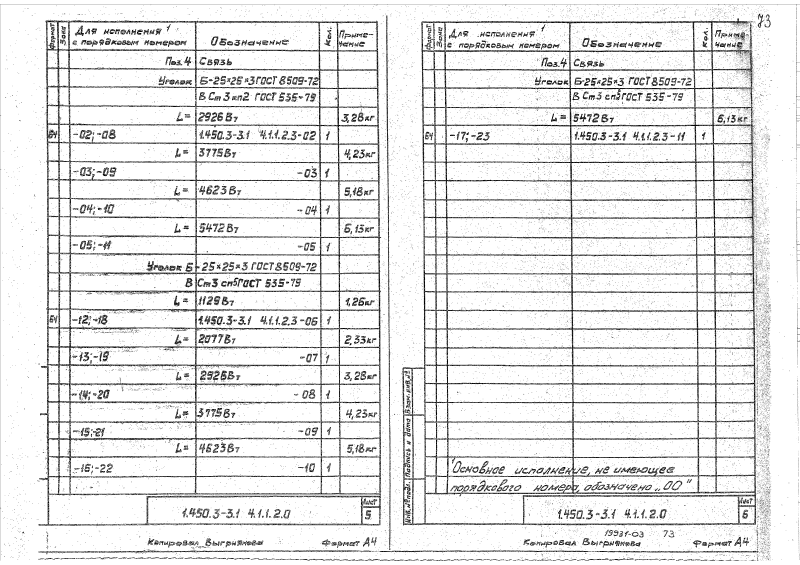 Формат Зона Для исполнения¹ с порядковым номером Обозначение Кол. Примечание
Поз.4 Связь
Уголок Б-25×25×3 ГОСТ 8509-72
В Ст3 кп2 ГОСТ 535-79
L= 2926 Вт 3,28кг
БЧ -02;-08 1.450.3-3.1 4.1.1.2.3-02 1
L= 3775 Вт 4,23кг
-03;-09 -03 1
L= 4623 Вт 5,18кг
-04;-10 -04 1
L= 5472 Вт 6,13кг
-05;-11 -05 1
Уголок Б-25×25×3 ГОСТ 8509-72
В Ст3 сп5 ГОСТ 535-79
L= 1129 Вт 1,26кг
БЧ -12;-18 1.450.3-3.1 4.1.1.2.3-06 1
L= 2077 Вт 2,33кг
-13;-19 -07 1
L= 2926 Вт 3,28кг
-14;-20 -08 1
L= 3775 Вт 4,23кг
-15;-21 -09 1
L= 4623 Вт 5,18кг
-16;-22 -10 1
1.450.3-3.1 4.1.1.2.0 Лист 5
Копировал Выгриянова Формат А4
73
Формат Зона Для исполнения¹ с порядковым номером Обозначение Кол. Примечание
Поз.4 Связь
Уголок Б-25×25×3 ГОСТ 8509-72
В Ст3 сп5 ГОСТ 535-79
L= 5472 Вт 6,13кг
БЧ -17;-23 1.450.3-3.1 4.1.1.2.3-11 1
¹Основное исполнение, не имеющее
порядкового номера, обозначено „00"
Инв.№подл. Подпись и дата Взам.инв.№
1.450.3-3.1 4.1.1.2.0 Лист 6
19931-03 73
Копировал Выгриянова Формат А4